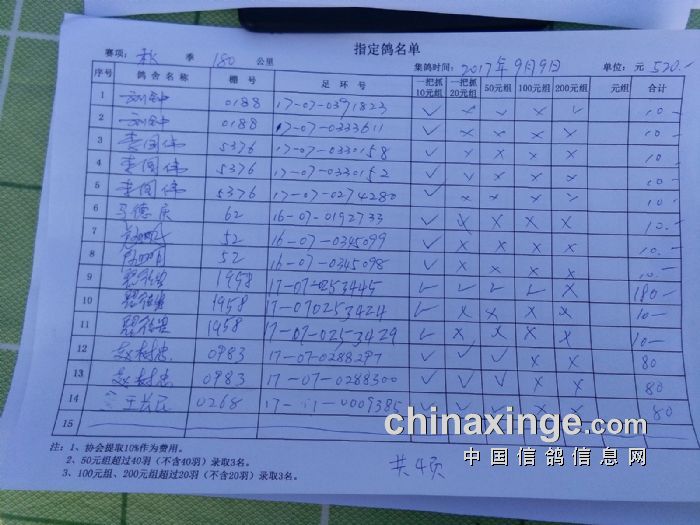 指定鸽名单
赛项: 秋 季 180 公里 集鸽时间: 2017年9月9日 单位: 元 520.-
序号 鸽舍名称 棚号 足环号 一把抓10元组 一把抓20元组 50元组 100元组 200元组 元组 合计
1 0188 17-07-0391823 ✓ × × × ✓ 10-
2 0188 17-07-0333611 ✓ × × × × 10-
3 李国伟 5376 17-07-0330158 ✓ × × × × 10-
4 李国伟 5376 17-07-0330152 ✓ × × × × 10-
5 李国伟 5376 17-07-0274280 ✓ × × × × 10-
6 马德庆 62 16-07-0192733 ✓ × × × × 10.-
7 52 16-07-0345099 ✓ × × × × 10.-
8 52 16-07-0345098 ✓ × × × × 10.-
9 1958 17-07-0253445 ✓ ✓ ✓ ✓ × 180-
10 1958 17-070253424 ✓ × × × × 10-
11 1958 17-07-0253429 ✓ × × × × 10-
12 赵树忠 0983 17-07-0288297 ✓ ✓ ✓ × × 80
13 赵树忠 0983 17-07-0288300 ✓ ✓ ✓ × × 80
14 0268 17-11-0009385 ✓ ✓ ✓ × × 80
15
注: 1、协会提取10%作为费用。
2、50元组超过40羽(不含40羽)录取3名。
3、100元组、200元组超过20羽(不含20羽)录取3名。
共4页
chinaxinge.com
中国信鸽信息网